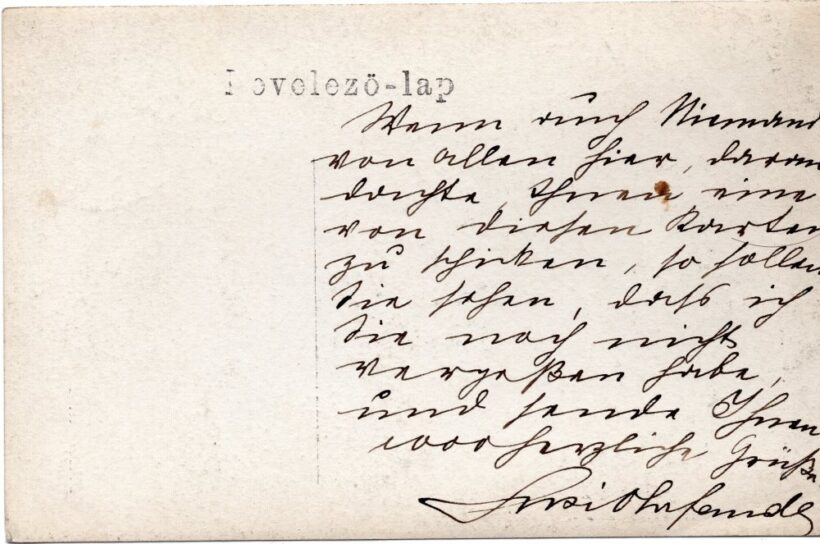 Levelező-lap
Wenn auch Niemand
von allen hier, daran
dachte, Ihnen eine
von diesen Karten
zu schicken, so sollen
Sie sehen, dass ich
Sie noch nicht
vergeßen habe,
und sende Ihnen
1000 herzliche Grüße